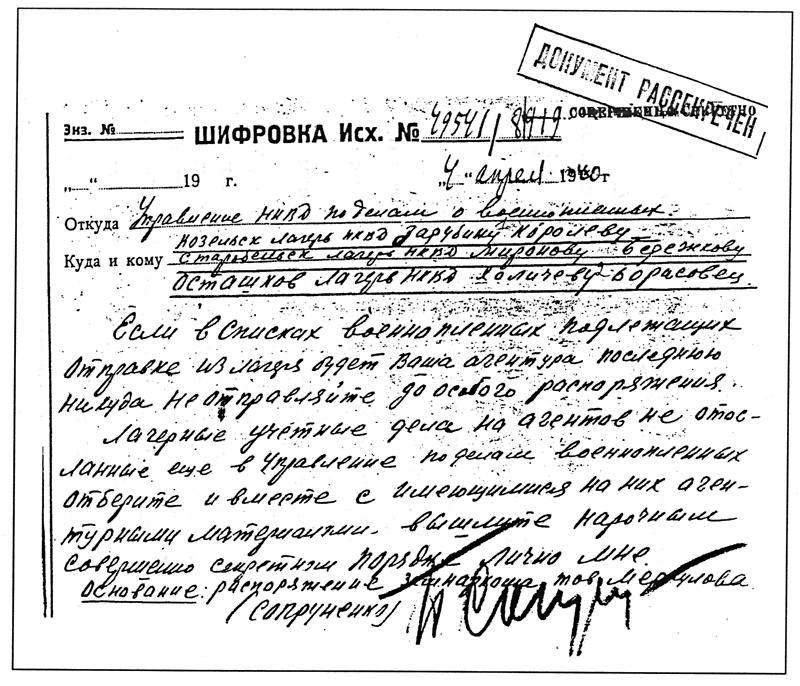 ДОКУМЕНТ РАССЕКРЕЧЕН
СОВЕРШЕННО СЕКРЕТНО
Экз. №
ШИФРОВКА Исх. № 49541/8919
„ “ 19 г.
„4“ апреля 1940 г
Откуда Управление НКВД по делам о военнопленных.
Козельск лагерь НКВД Зарубину Королеву
Куда и кому Старобельск лагерь НКВД Миронову - Бережкову
Осташков лагерь НКВД Холичеву - Борасовец
Если в списках военнопленных подлежащих
отправке из лагеря будет Ваша агентура последнюю
никуда не отправляйте до особого распоряжения.
Лагерные учетные дела на агентов не отос-
ланные еще в Управление по делам военнопленных
отберите и вместе с имеющимися на них аген-
турными материалами вышлите нарочным
совершенно секретным порядке лично мне.
Основание: распоряжение замнаркома тов Меркулова
(Сопруненко)